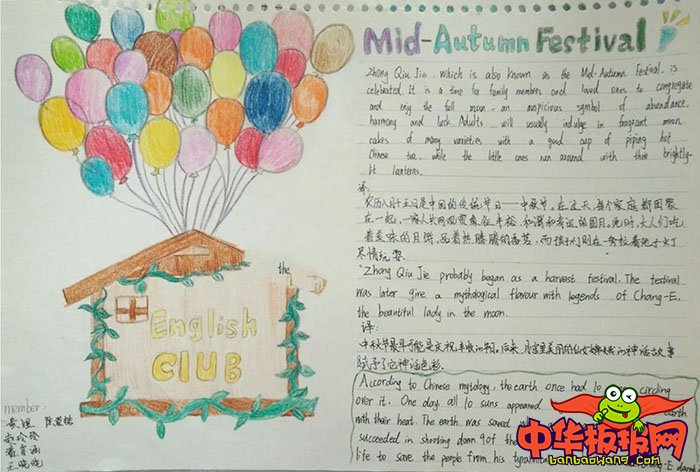 Mid-Autumn Festival
Zhong Qiu Jie, which is also known as the Mid-Autumn Festival, is
celebrated. It is a time for family members and loved ones to congregate
and enjoy the full moon - an auspicious symbol of abundance,
harmony and luck. Adults will usually indulge in fragrant moon
cakes of many varieties with a good cup of piping hot
Chinese tea, while the little ones run around with their brightly-
lit lanterns.
译:
农历八月十五日是中国的传统节日——中秋节。在这天,每个家庭都团聚
在一起,一家人共同观赏象征丰裕、和谐和幸运的圆月。此时,大人们吃
着美味的月饼,品着热腾腾的香茗,而孩子们则在一旁拉着兔子灯
尽情玩耍.
"Zhong Qiu Jie probably began as a harvest festival. The festival
was later give a mythological flavour with legends of Chang-E,
the beautiful lady in the moon.
译:
中秋节最早可能是庆祝丰收的节日。后来,月宫里美丽的仙女嫦娥的神话故事
赋予了它神话色彩.
According to Chinese mytology, the earth once had 10 circling
over it. One day, all 10 suns appeared earth
with their heat. The earth was saved
succeeded in shooting down 9 of the
life to save the people from his tyrannical Chang-E
the
English
CLUB
member:
中华板报网
banbaowang.com